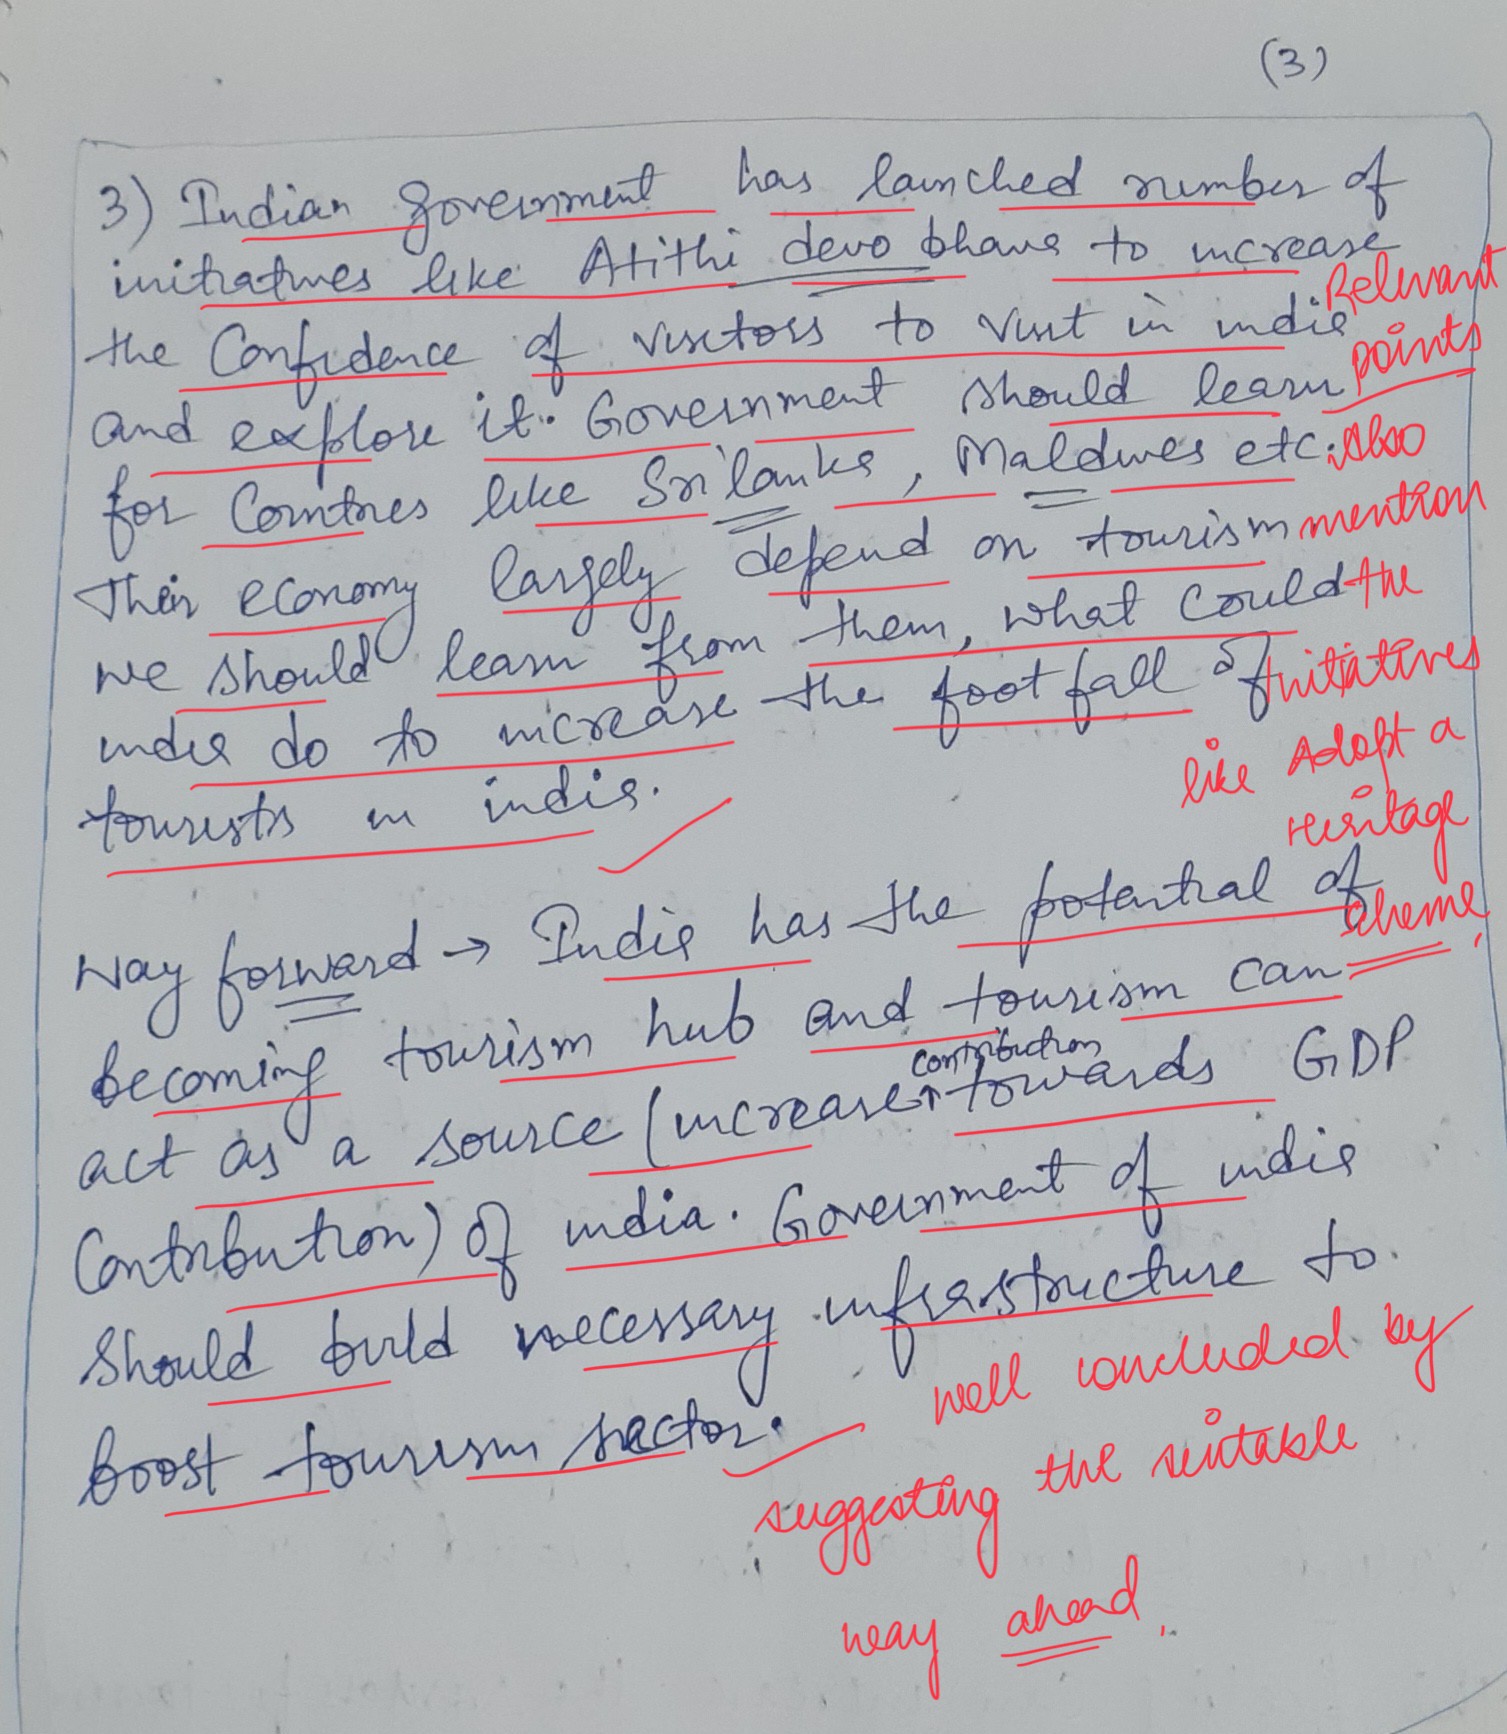 (3)
3) Indian government has launched number of
initiatives like Atithi devo bhava to increase
the Confidence of visitors to visit in india
and explore it. Government should learn
for Countries like Sri lanka, Maldives etc.
Their economy largely depend on tourism
we should learn from them, what could
india do to increase the footfall of
tourists in india.
Relevant
points
Also
mention
the
initiatives
like Adopt a
Heritage
scheme,
Way forward → India has the potential of
becoming tourism hub and tourism can
contribution
act as a source (increase towards GDP
Contribution) of india. Government of india
should build necessary infrastructure to
boost tourism sector.
well concluded by
suggesting the suitable
way ahead.